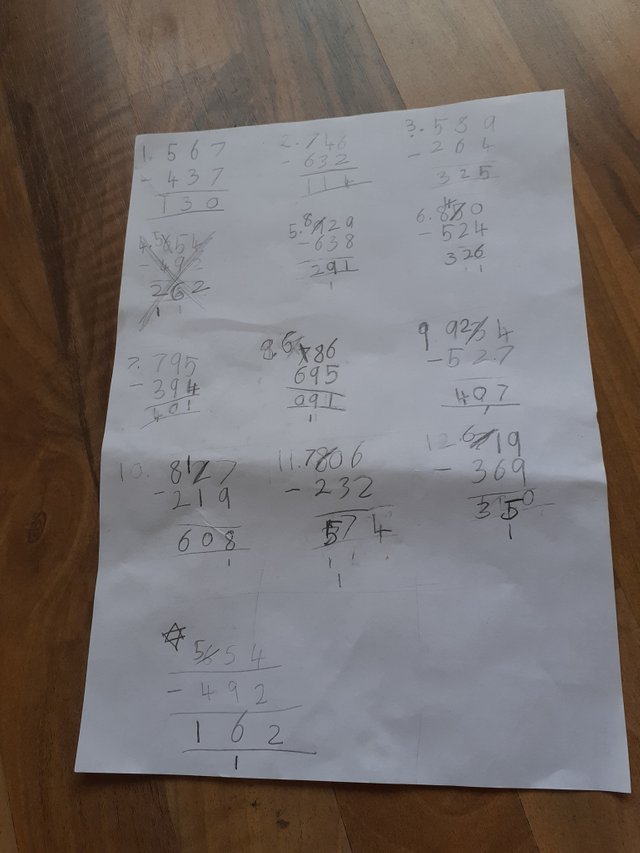 1. 567
- 437
130
2. 746
- 632
114
3. 589
- 264
325
4. 5654
- 492
262
1 1
5. 8929
- 638
291
1
6. 8450
- 524
326
1
7. 795
- 394
401
8. 6786
695
091
1
9 9234
- 527
407
1
10. 8127
- 219
608
1
11. 7806
- 232
574
1
1
12. 6719
- 369
350
1
☆
5654
- 492
162
1